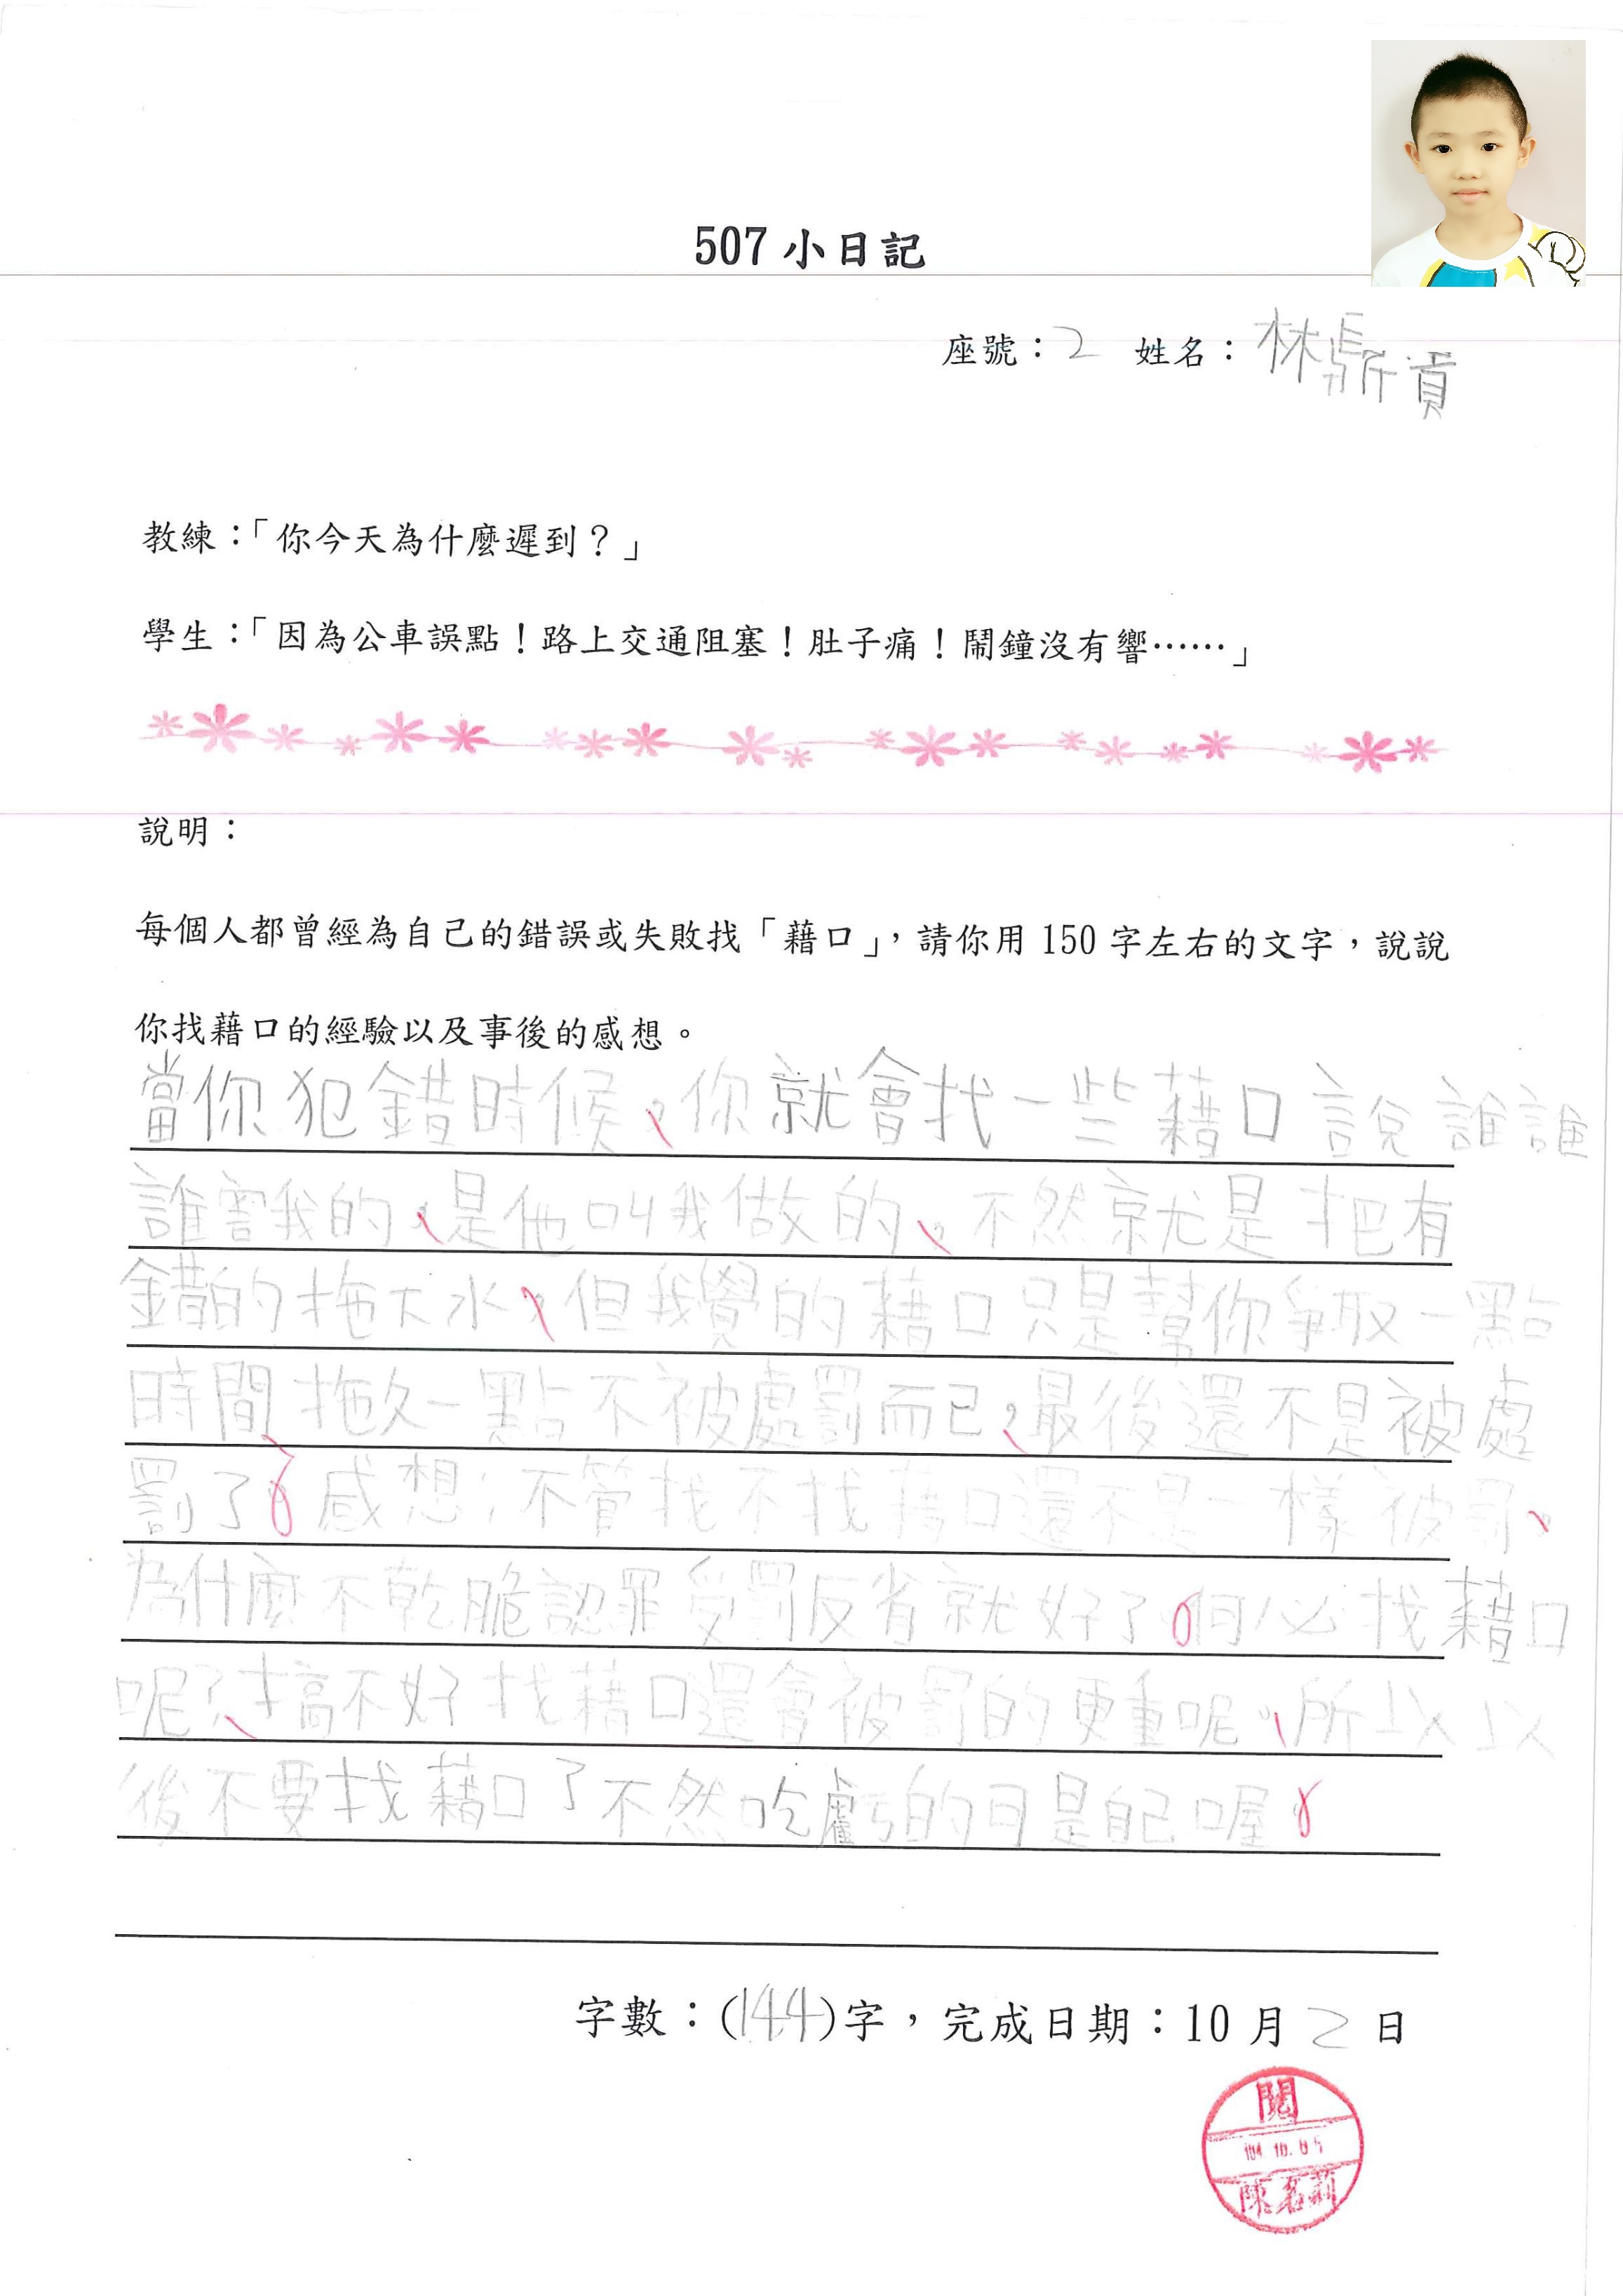 507 小日記
座號：2 姓名：林 貢
教練：「你今天為什麼遲到？」
學生：「因為公車誤點！路上交通阻塞！肚子痛！鬧鐘沒有響……」
說明：
每個人都曾經為自己的錯誤或失敗找「藉口」，請你用 150 字左右的文字，說說
你找藉口的經驗以及事後的感想。
當你犯錯時候，你就會找一些藉口說誰誰
誰害我的，是他叫我做的，不然就是把有
錯的拖下水，但我覺的藉口只是幫你爭取一點
時間拖久一點不被處罰而已，最後還不是被處
罰了。感想：不管找不找藉口還不是一樣被罰，
為什麼不乾脆認罪受罰反省就好了。何必找藉口
呢？搞不好找藉口還會被罰的更重呢，所以以
後不要找藉口了不然吃虧的可是自己喔。
字數：(144)字，完成日期：10 月 2 日
閱
104.10.05